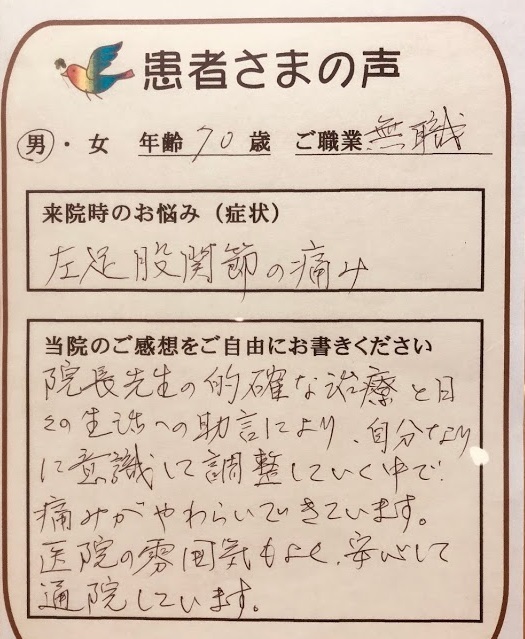 患者さまの声
男・女 年齢 70 歳 ご職業 無職
来院時のお悩み（症状）
左足股関節の痛み
当院のご感想をご自由にお書きください
院長先生の的確な治療と日
々の生活への助言により、自分なり
に意識して調整していく中で
痛みがやわらいできています。
医院の雰囲気もよく、安心して
通院しています。